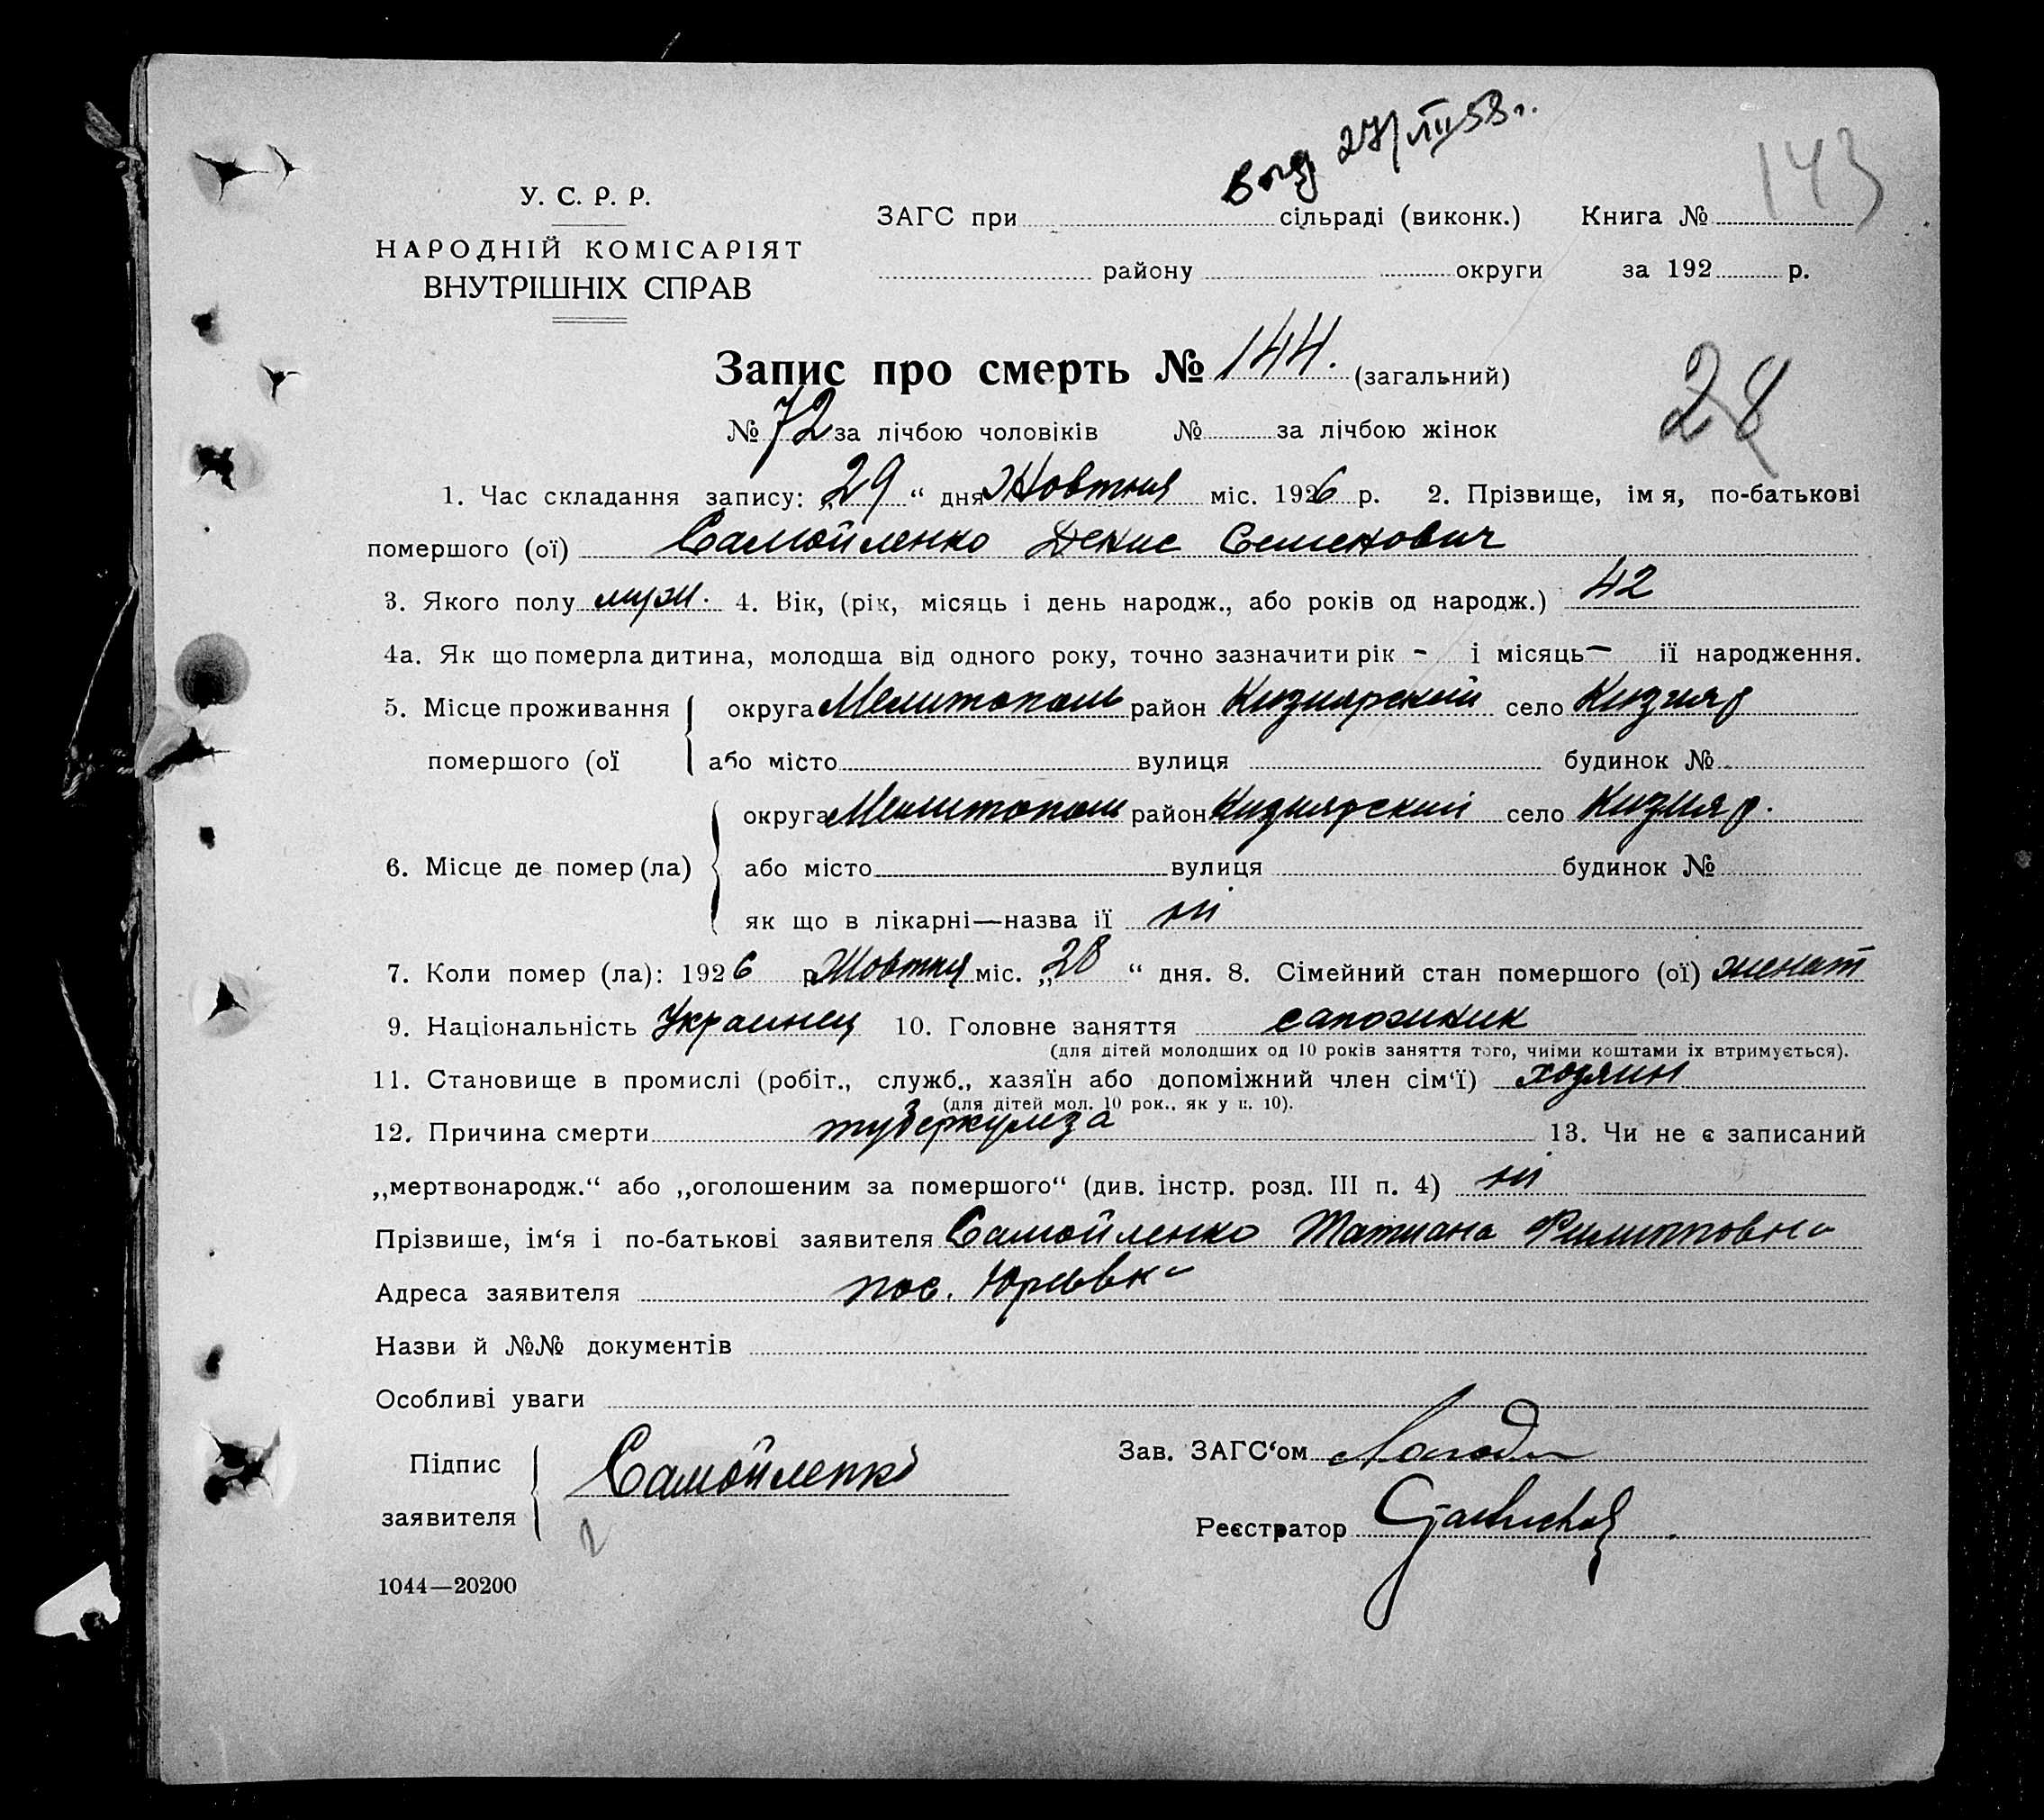 27/VII 58 г.
143
У. С. Р. Р.
НАРОДНІЙ КОМІСАРІЯТ
ВНУТРІШНІХ СПРАВ
ЗАГС при сільраді (виконк.) Книга №
району округи за 192 р.
Запис про смерть № 144. (загальний)
28
№ 72 за лічбою чоловіків № за лічбою жінок
1. Час складання запису: „29“ дня Жовтня міс. 1926 р. 2. Прізвище, імя, по-батькові
помершого (ої) Самойленко Денис Семенович
3. Якого полу муж. 4. Вік, (рік, місяць і день народж., або років од народж.) 42
4а. Як що померла дитина, молодша від одного року, точно зазначити рік - і місяць - ії народження.
5. Місце проживання округа Мелитополь район Кизиярский село Кизияр
помершого (ої або місто вулиця будинок №
округа Мелитополь район Кизиярский село Кизияр.
6. Місце де помер (ла) або місто вулиця будинок №
як що в лікарні—назва ії ні
7. Коли помер (ла): 1926 р. Жовтня міс. „28“ дня. 8. Сімейний стан помершого (ої) женат
9. Національність Украинец 10. Головне заняття сапожник
(для дітей молодших од 10 років заняття того, чиїми коштами їх втримується).
11. Становище в промислі (робіт., служб., хазяїн або допоміжний член сім‘ї) хозяин
(для дітей мол. 10 рок., як у п. 10).
12. Причина смерти туберкулеза 13. Чи не є записаний
„мертвонародж.“ або „оголошеним за помершого“ (див. інстр. розд. III п. 4) ні
Прізвише, ім‘я і по-батькові заявителя Самойленко Татиана Филипповна
Адреса заявителя пос. Юрьевка
Назви й №№ документів
Особливі уваги
Підпис
заявителя Самойленко
Зав. ЗАГС‘ом
Реєстратор
1044—20200